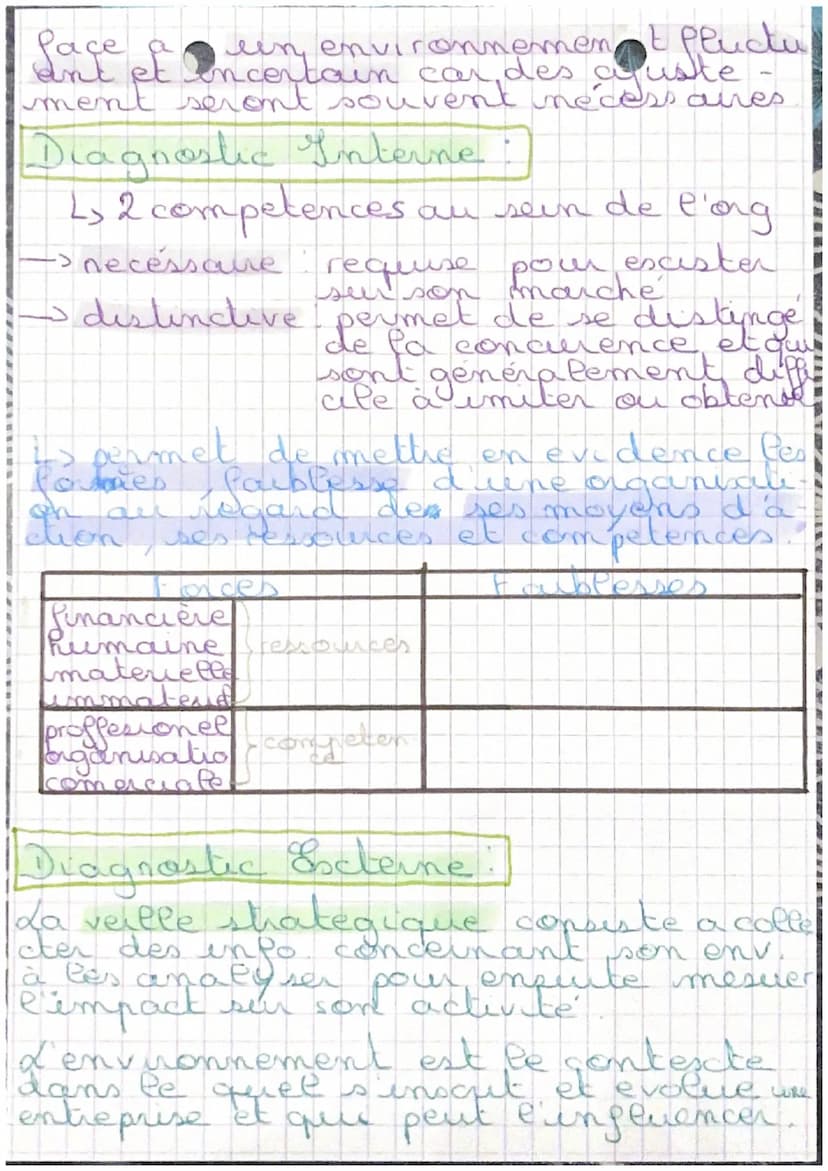 face a un environnement fluctu
ant et incertain car des ajuste -
ment seront souvent nécessaires
Diagnostic Interne :
↳ 2 competences au sein de l'org
→ necéssaire : requise pour exister
sur son marché
→ distinctive : permet de se distingé
de la concurence, et qui
sont généralement diffi
cile à imiter ou obtenir
↳ permet de mettre en evidence les
forces, faiblesse d'une organisati-
on au regard de ses moyens d'a-
ction, ses ressources et compétences.
Forces Faiblesses
financière
humaine ressources
materielle
immateriel
proffesionel
organisatio competen
ce
comerciale
Diagnostic Externe :
La veille strategique consiste a colle
cter des info. concernant son env.
à les analyser pour ensuite mesurer
l'impact sur son activité.
L'environnement est le contexte
dans le quel s'inscrit et evolue une
entreprise et qui peut l'influencer.